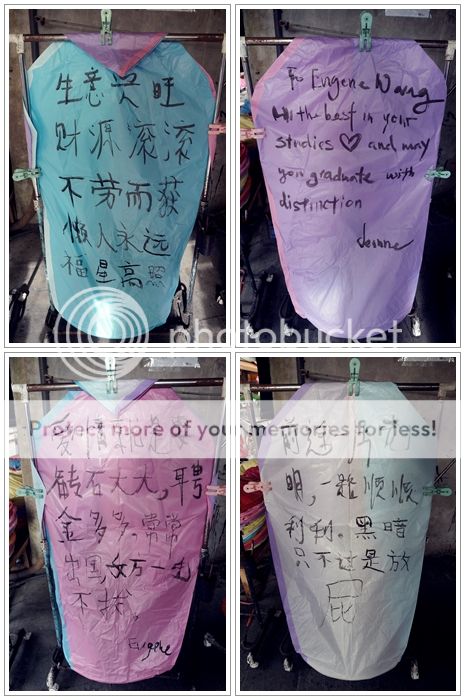 生意兴旺
财源滚滚
不劳而获
懒人永远
福星高照
To Eugene Wang
All the best in your
studies ♡ and may
you graduate with
distinction
Jeanne
photobucket
Protect more of your memories for less!
爱情
钻石大大,聘
金多多.常常
出国
不挨,
Eugene
前途
明,一路顺顺
利利.黑暗
只不过是放
屁